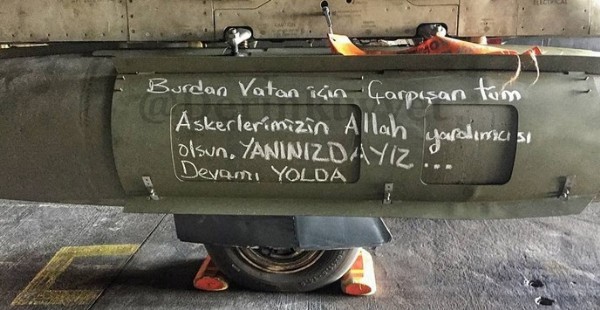 Burdan Vatan için Çarpışan tüm
Askerlerimizin Allah yardımcısı
olsun. YANINIZDAYIZ ...
Devamı YOLDA